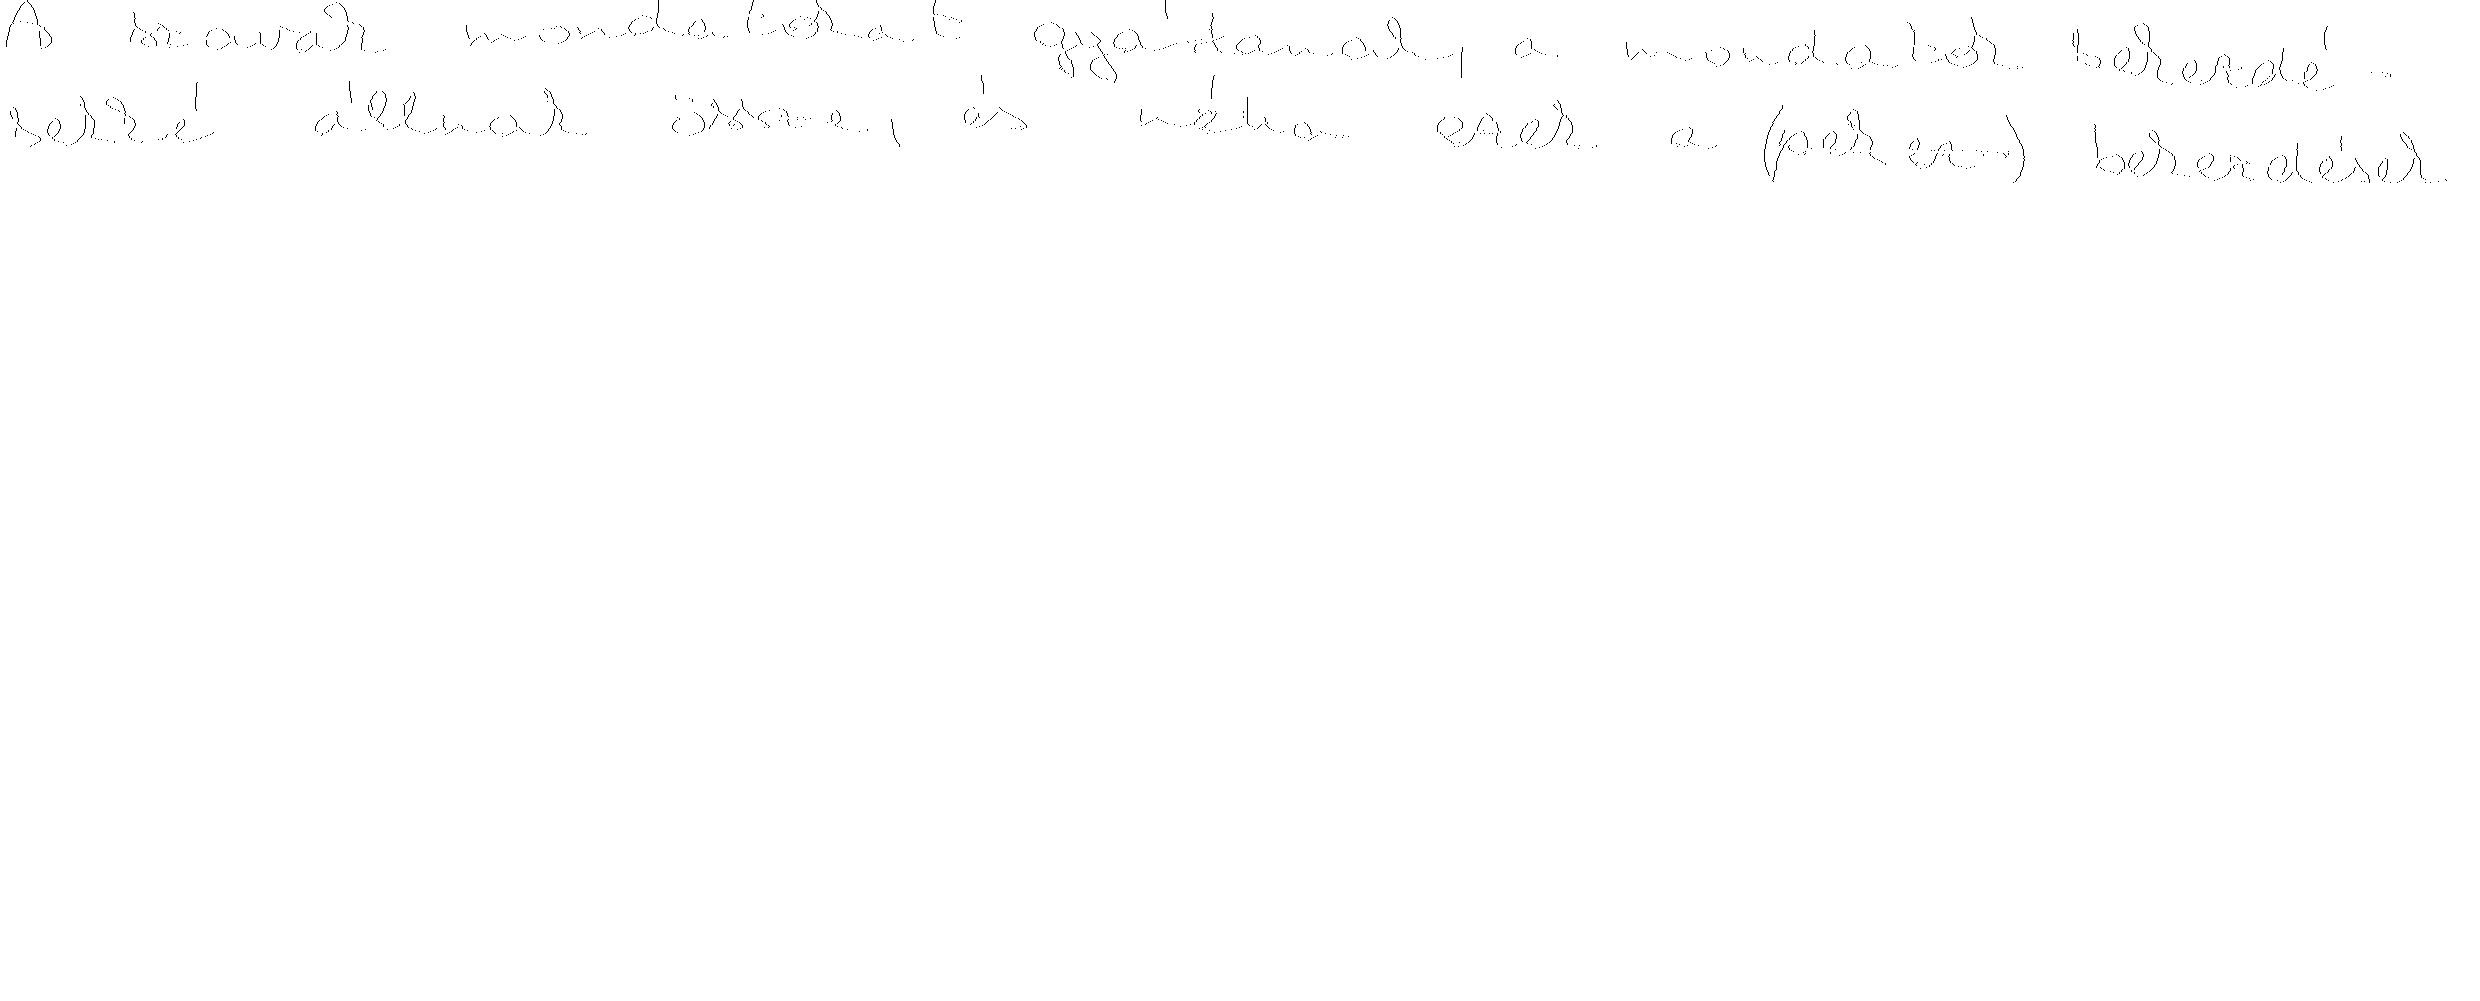 A szavak mondatokat gyártanak, a mondatok bekezdé-
sekké állnak össze, és néha ezek a (        ) bekezdések